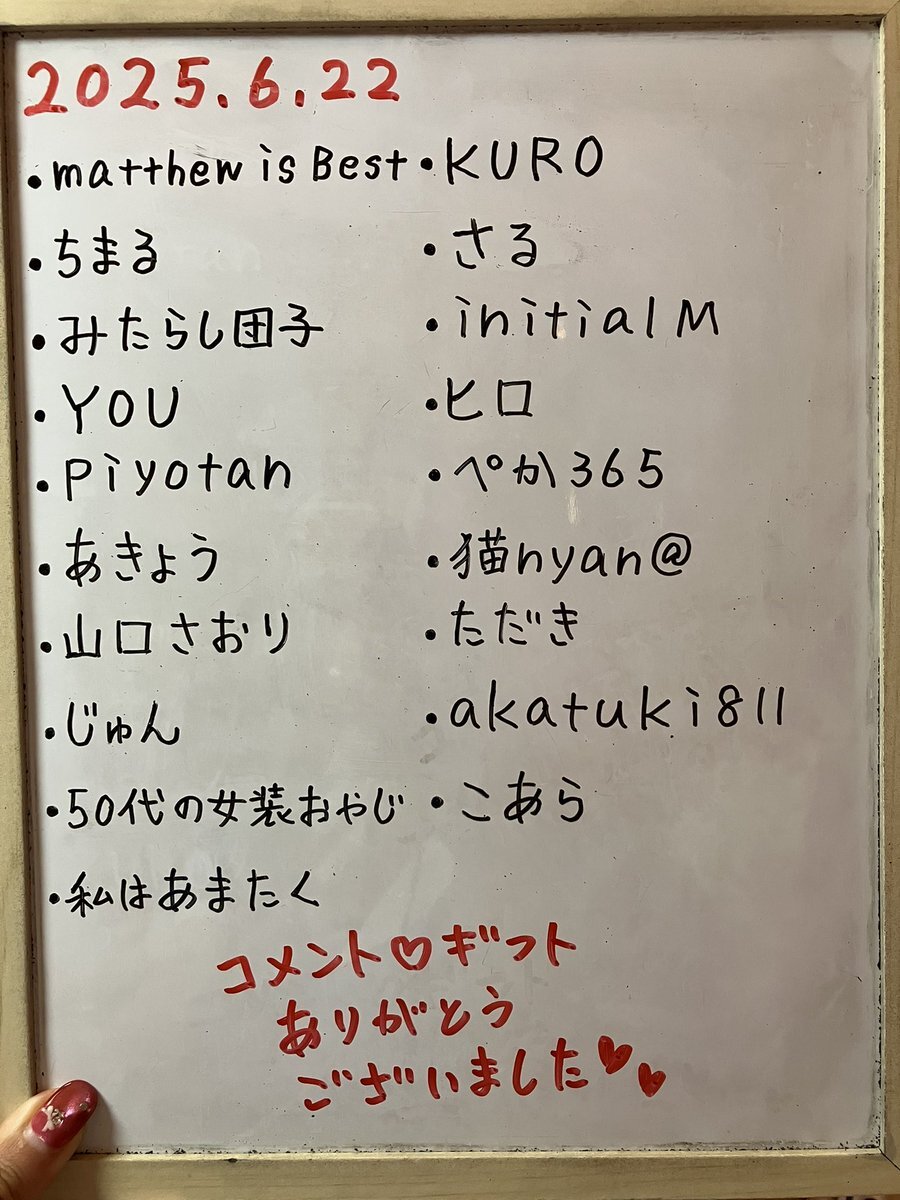 2025.6.22
・matthew is Best
・ちまる
・みたらし団子
・YOU
・piyotan
・あきょう
・山口さおり
・じゅん
・50代の女装おやじ
・私はあまたく
・KURO
・さる
・initial M
・ヒロ
・ぺか365
・猫nyan@
・ただき
・akatuki811
・こあら
コメント♡ギフト
ありがとう
ございました♥♥